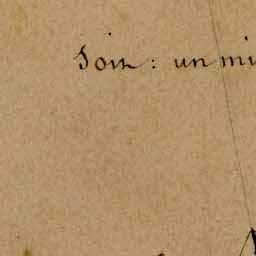 Soin : un mi